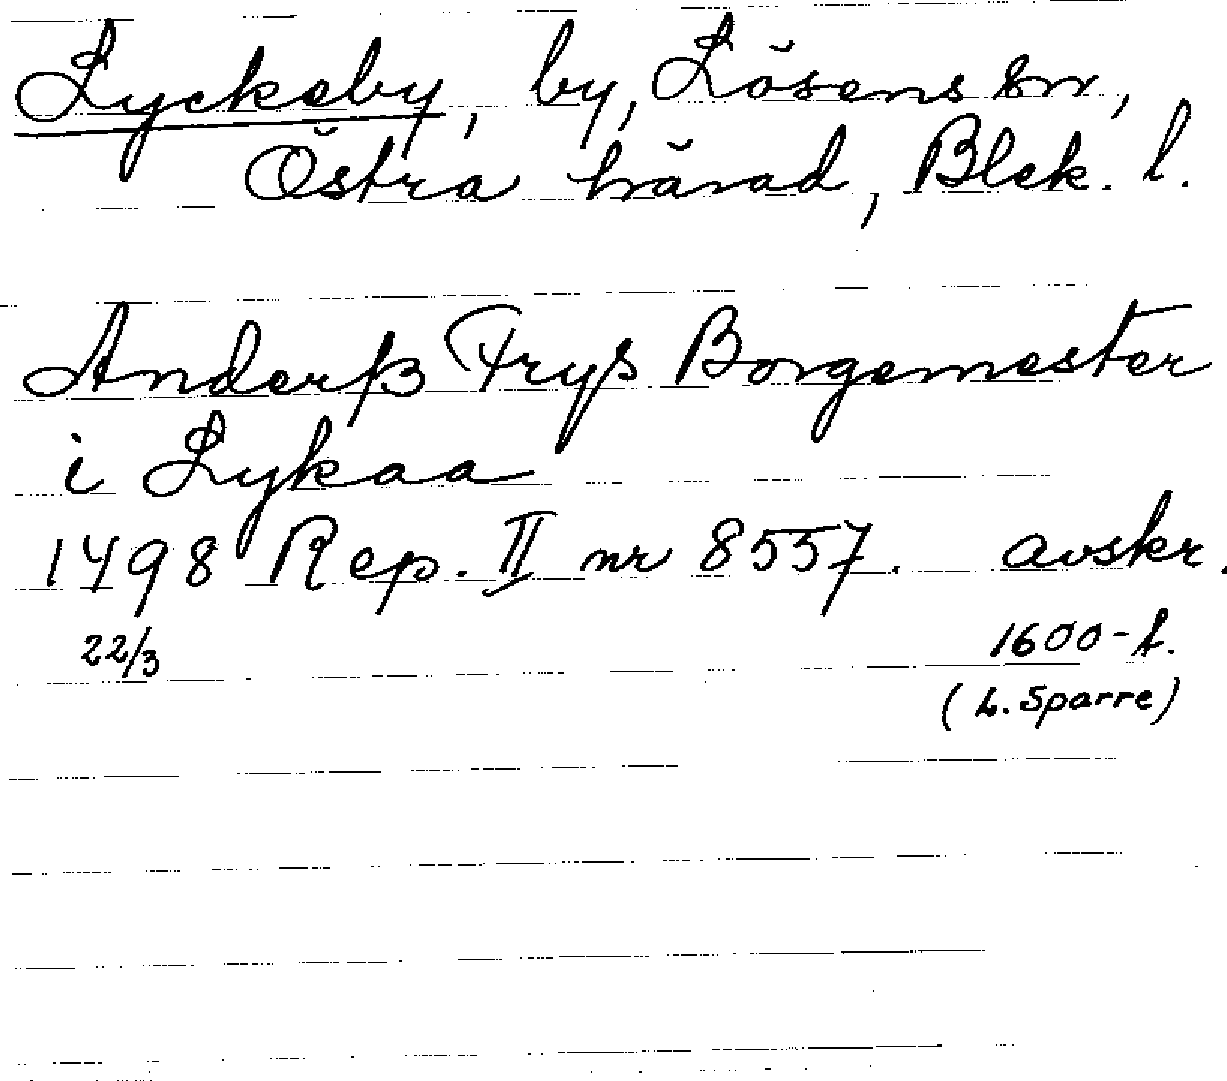 Lyckeby, by, Lösens sn,
Östra härad, Blek. l.
Anderß Fryß Borgemester
i Lykaa
1498 Rep. II nr 8557. avskr.
22/3 1600-t.
(L. Sparre)